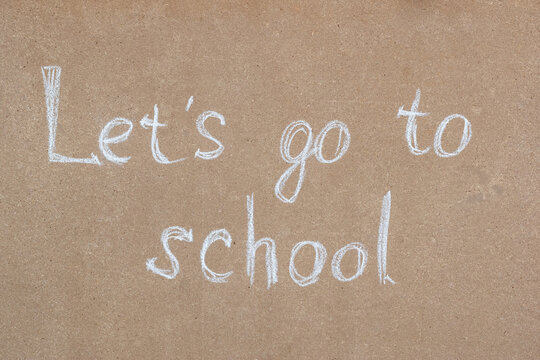 Let's go to
school